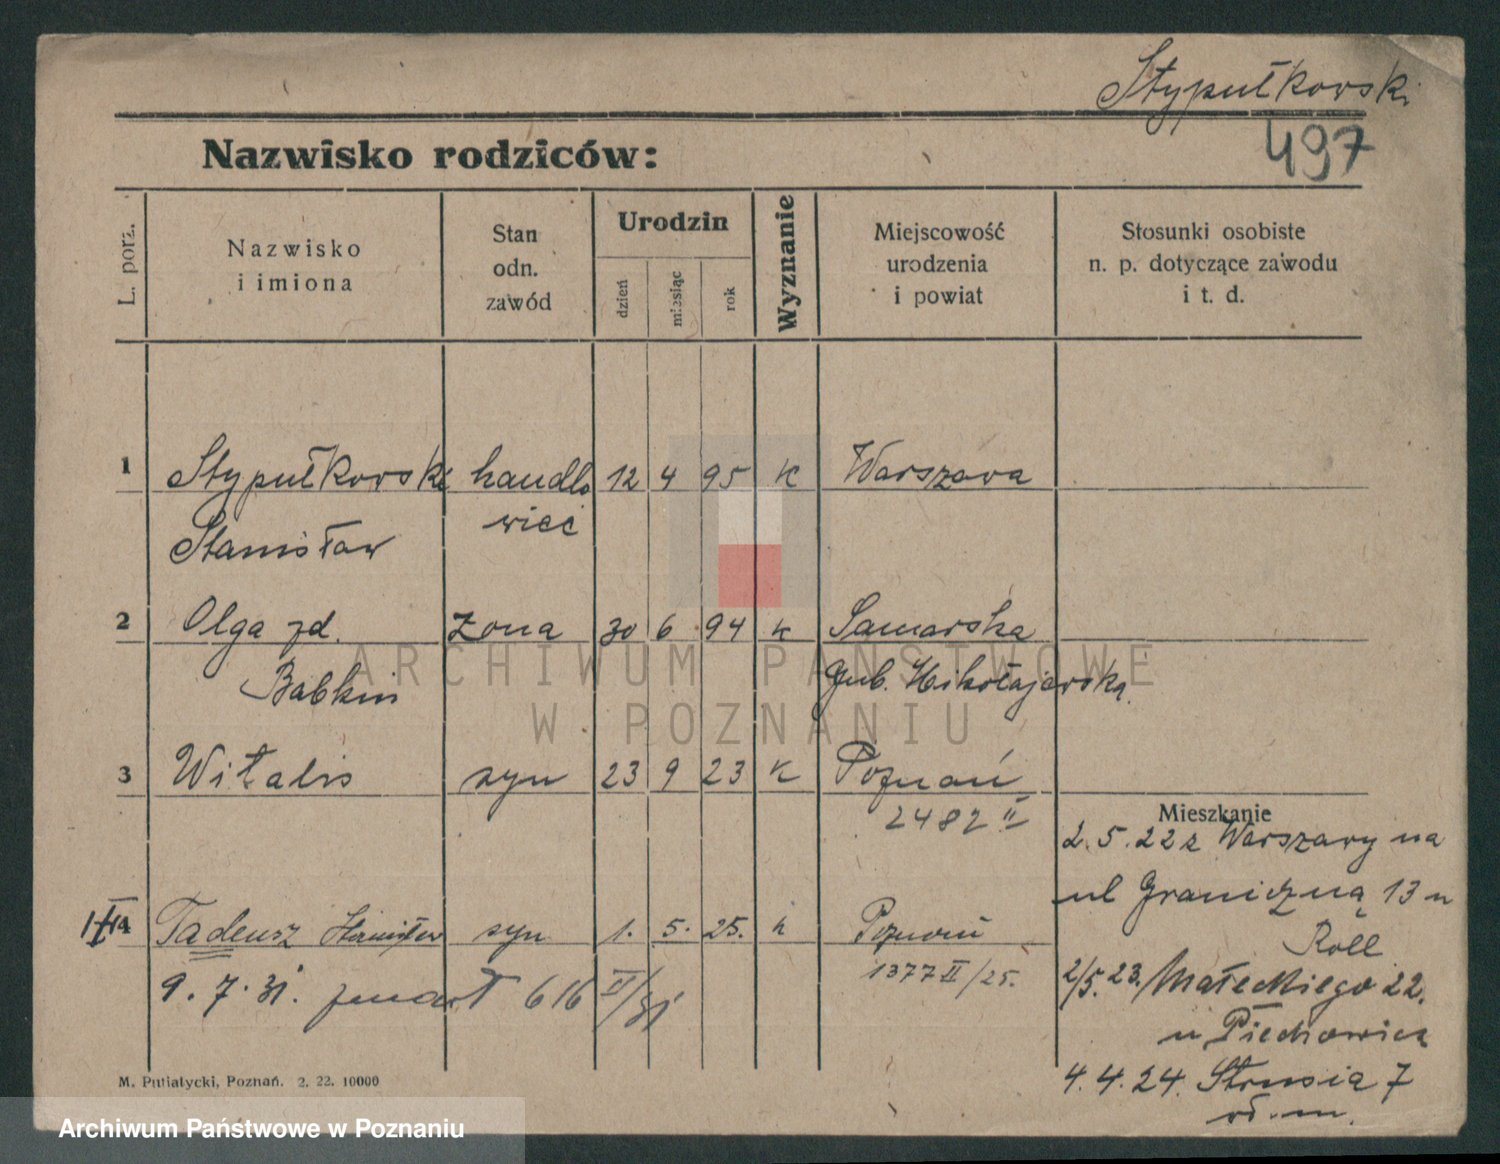 Stypułkowski
497
Nazwisko rodziców:
L. porz.
Nazwisko
i imiona
Stan
odn.
zawód
Urodzin
dzień
miesiąc
rok
Wyznanie
Miejscowość
urodzenia
i powiat
Stosunki osobiste
n. p. dotyczące zawodu
i t. d.
1 Stypułkowski handlo 12 4 95 k Warszawa
Stanisław wiec
2 Olga zd. żona 30 6 94 k Samarska
Babkin gub. Nikołajewska
3 Witalis syn 23 9 23 k Poznań
2482 II
Mieszkanie
2.5.22 z Warszawy na
ul Graniczną 13 u
Roll
4 Tadeusz Stanisław syn 1. 5. 25. k Poznań
1377 II/25.
9.7.31. zmarł 616 II/31
2/5.23. Małeckiego 22.
u Piechowicz
4.4.24. Strusia 7
M. Putiatycki, Poznań. 2. 22. 10000
ARCHIWUM PAŃSTWOWE
W POZNANIU
Archiwum Państwowe w Poznaniu